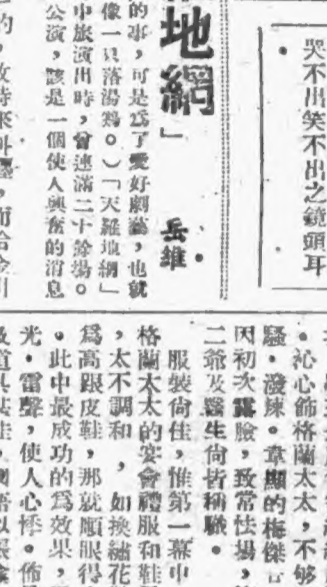 哭不出笑不出之鏡頭耳
。
地網」
岳維
的事,可是爲了愛好劇藝,也就
像一只落湯鷄。)「天羅地網」
中旅演出時,曾連滿二十餘場。
公演,該是一個使人興奮的消息
。沁心飾格蘭太太,不够
騷,潑辣。韋顯的梅傑
因初次露臉,致常怯場,
二爺及醫生尚皆稱職。
服裝尚佳,惟第一幕中
格蘭太太的宴會禮服和鞋
,太不調和,如換繡花
爲高跟皮鞋,那就順眼得
。此中最成功的爲效果,
光。雷聲,使人心悸。佈